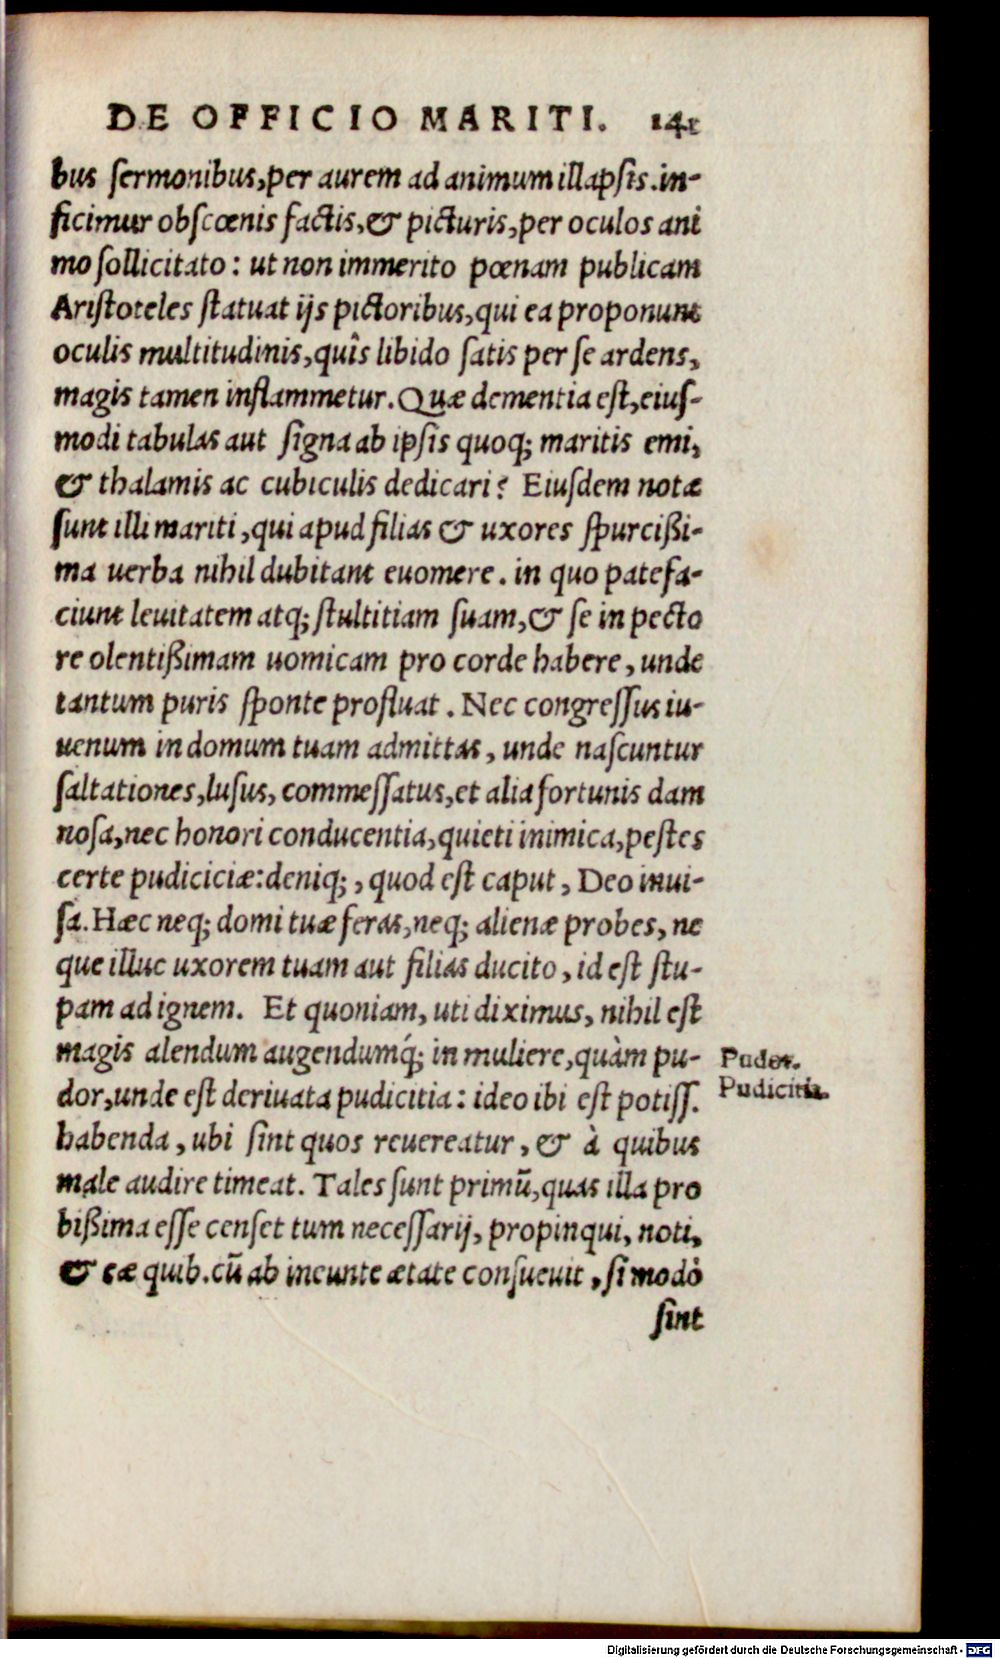 DE OFFICIO MARITI. 141
bus sermonibus, per aurem ad animum illapsis. in-
ficimur obscœnis factis, & picturis, per oculos ani
mo sollicitato: ut non immerito pœnam publicam
Aristoteles statuat ijs pictoribus, qui ea proponunt
oculis multitudinis, quîs libido satis per se ardens,
magis tamen inflammetur. Quæ dementia est, eius-
modi tabulas aut signa ab ipsis quoq; maritis emi,
& thalamis ac cubiculis dedicari? Eiusdem notæ
sunt illi mariti, qui apud filias & uxores spurcißi-
ma uerba nihil dubitant euomere. in quo patefa-
ciunt leuitatem atq; stultitiam suam, & se in pecto
re olentißimam uomicam pro corde habere, unde
tantum puris sponte profluat. Nec congressus iu-
uenum in domum tuam admittas, unde nascuntur
saltationes, lusus, commessatus, et alia fortunis dam
nosa, nec honori conducentia, quieti inimica, pestes
certe pudiciciæ: deniq;, quod est caput, Deo inui-
sa. Hæc neq; domi tuæ feras, neq; alienæ probes, ne
que illuc uxorem tuam aut filias ducito, id est stu-
pam ad ignem. Et quoniam, uti diximus, nihil est
magis alendum augendumq́; in muliere, quàm pu-
dor, unde est deriuata pudicitia: ideo ibi est potiss.
habenda, ubi sint quos reuereatur, & à quibus
male audire timeat. Tales sunt primū, quas illa pro
bißima esse censet tum necessarij, propinqui, noti,
& eæ quib. cū ab ineunte ætate consueuit, si modò
sint
Pudor.
Pudicitia.
Digitalisierung gefördert durch die Deutsche Forschungsgemeinschaft - DFG